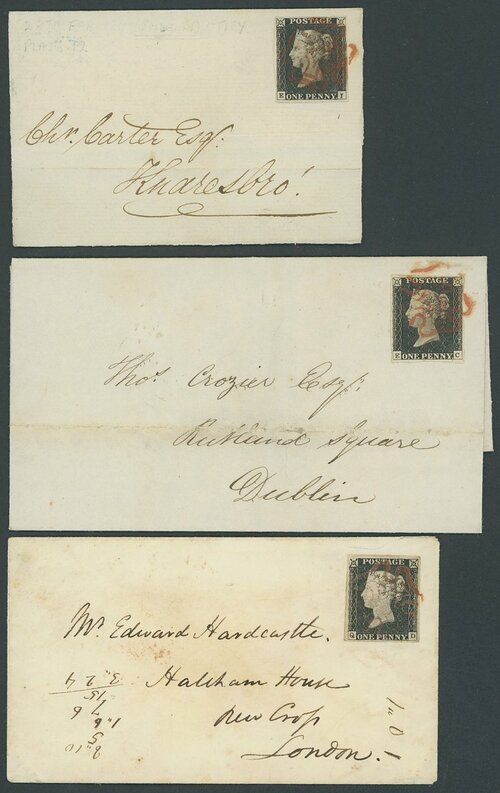 POSTAGE
E I
ONE PENNY
Chr. Carter Esqr.
Knaresbro'.
POSTAGE
E C
ONE PENNY
Thos. Crozier Esqr.
Rutland Square
Dublin
POSTAGE
ONE PENNY
Mr. Edward Hardcastle.
Hatcham House
New Cross
London.